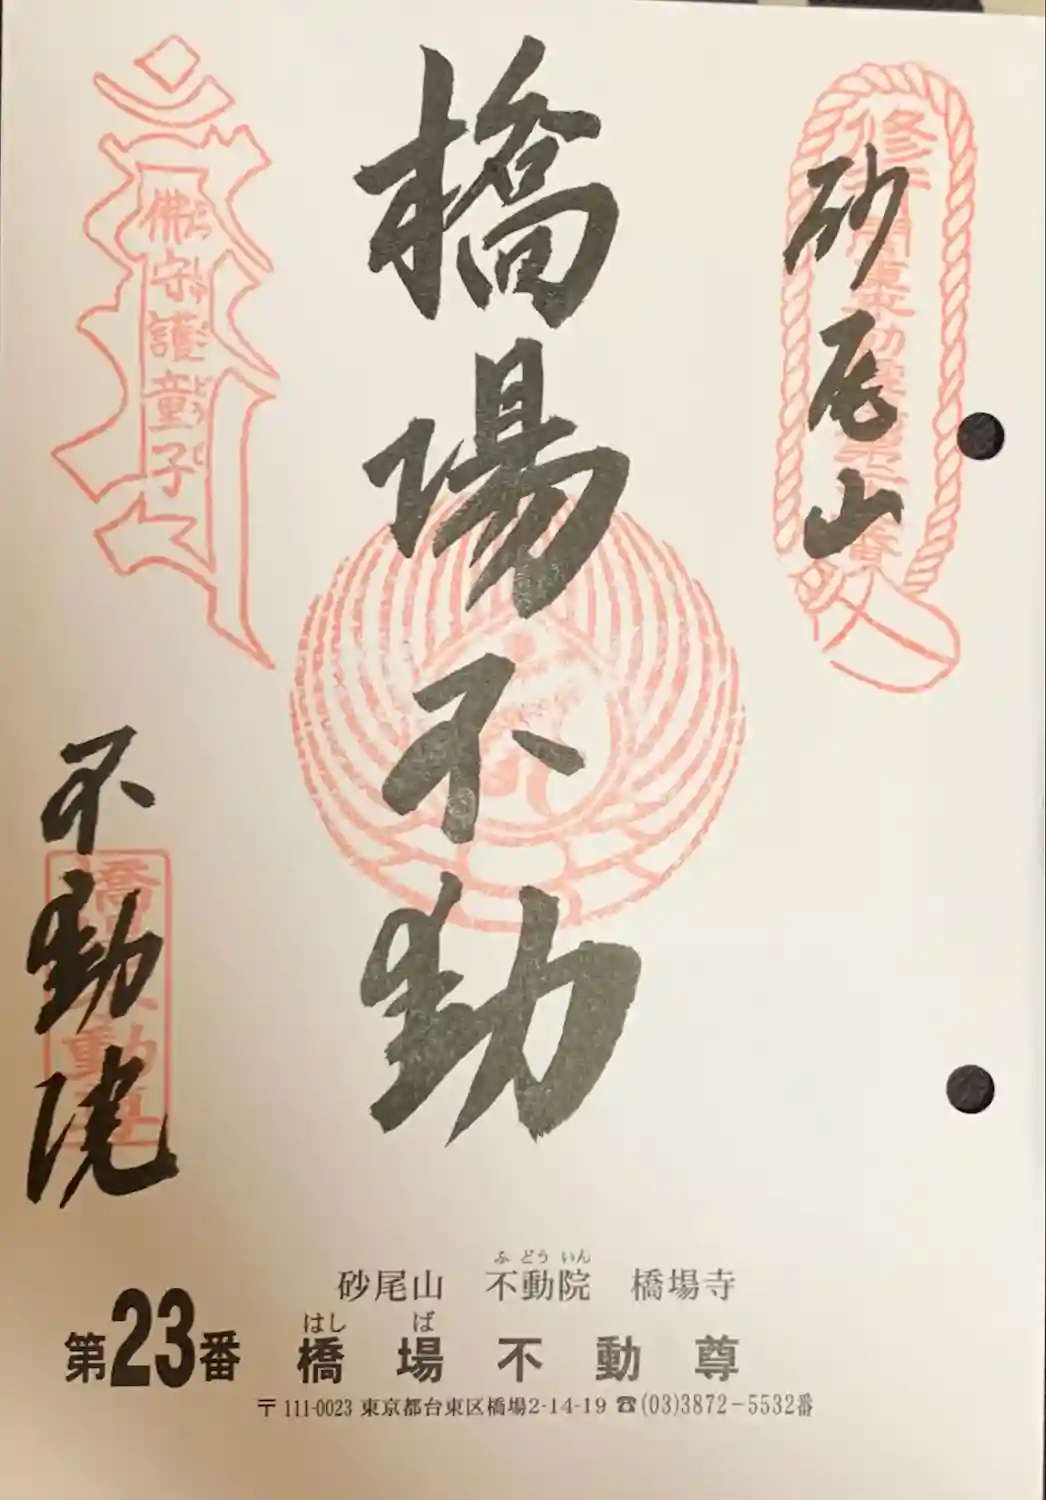 砂尾山
橋場不動
不動院
佛守護童子
ぶつしゅごどうじ
橋場不動尊
ふどういん
砂尾山 不動院 橋場寺
はしば
第23番 橋場不動尊
〒111-0023 東京都台東区橋場2-14-19 ☎(03)3872-5532番